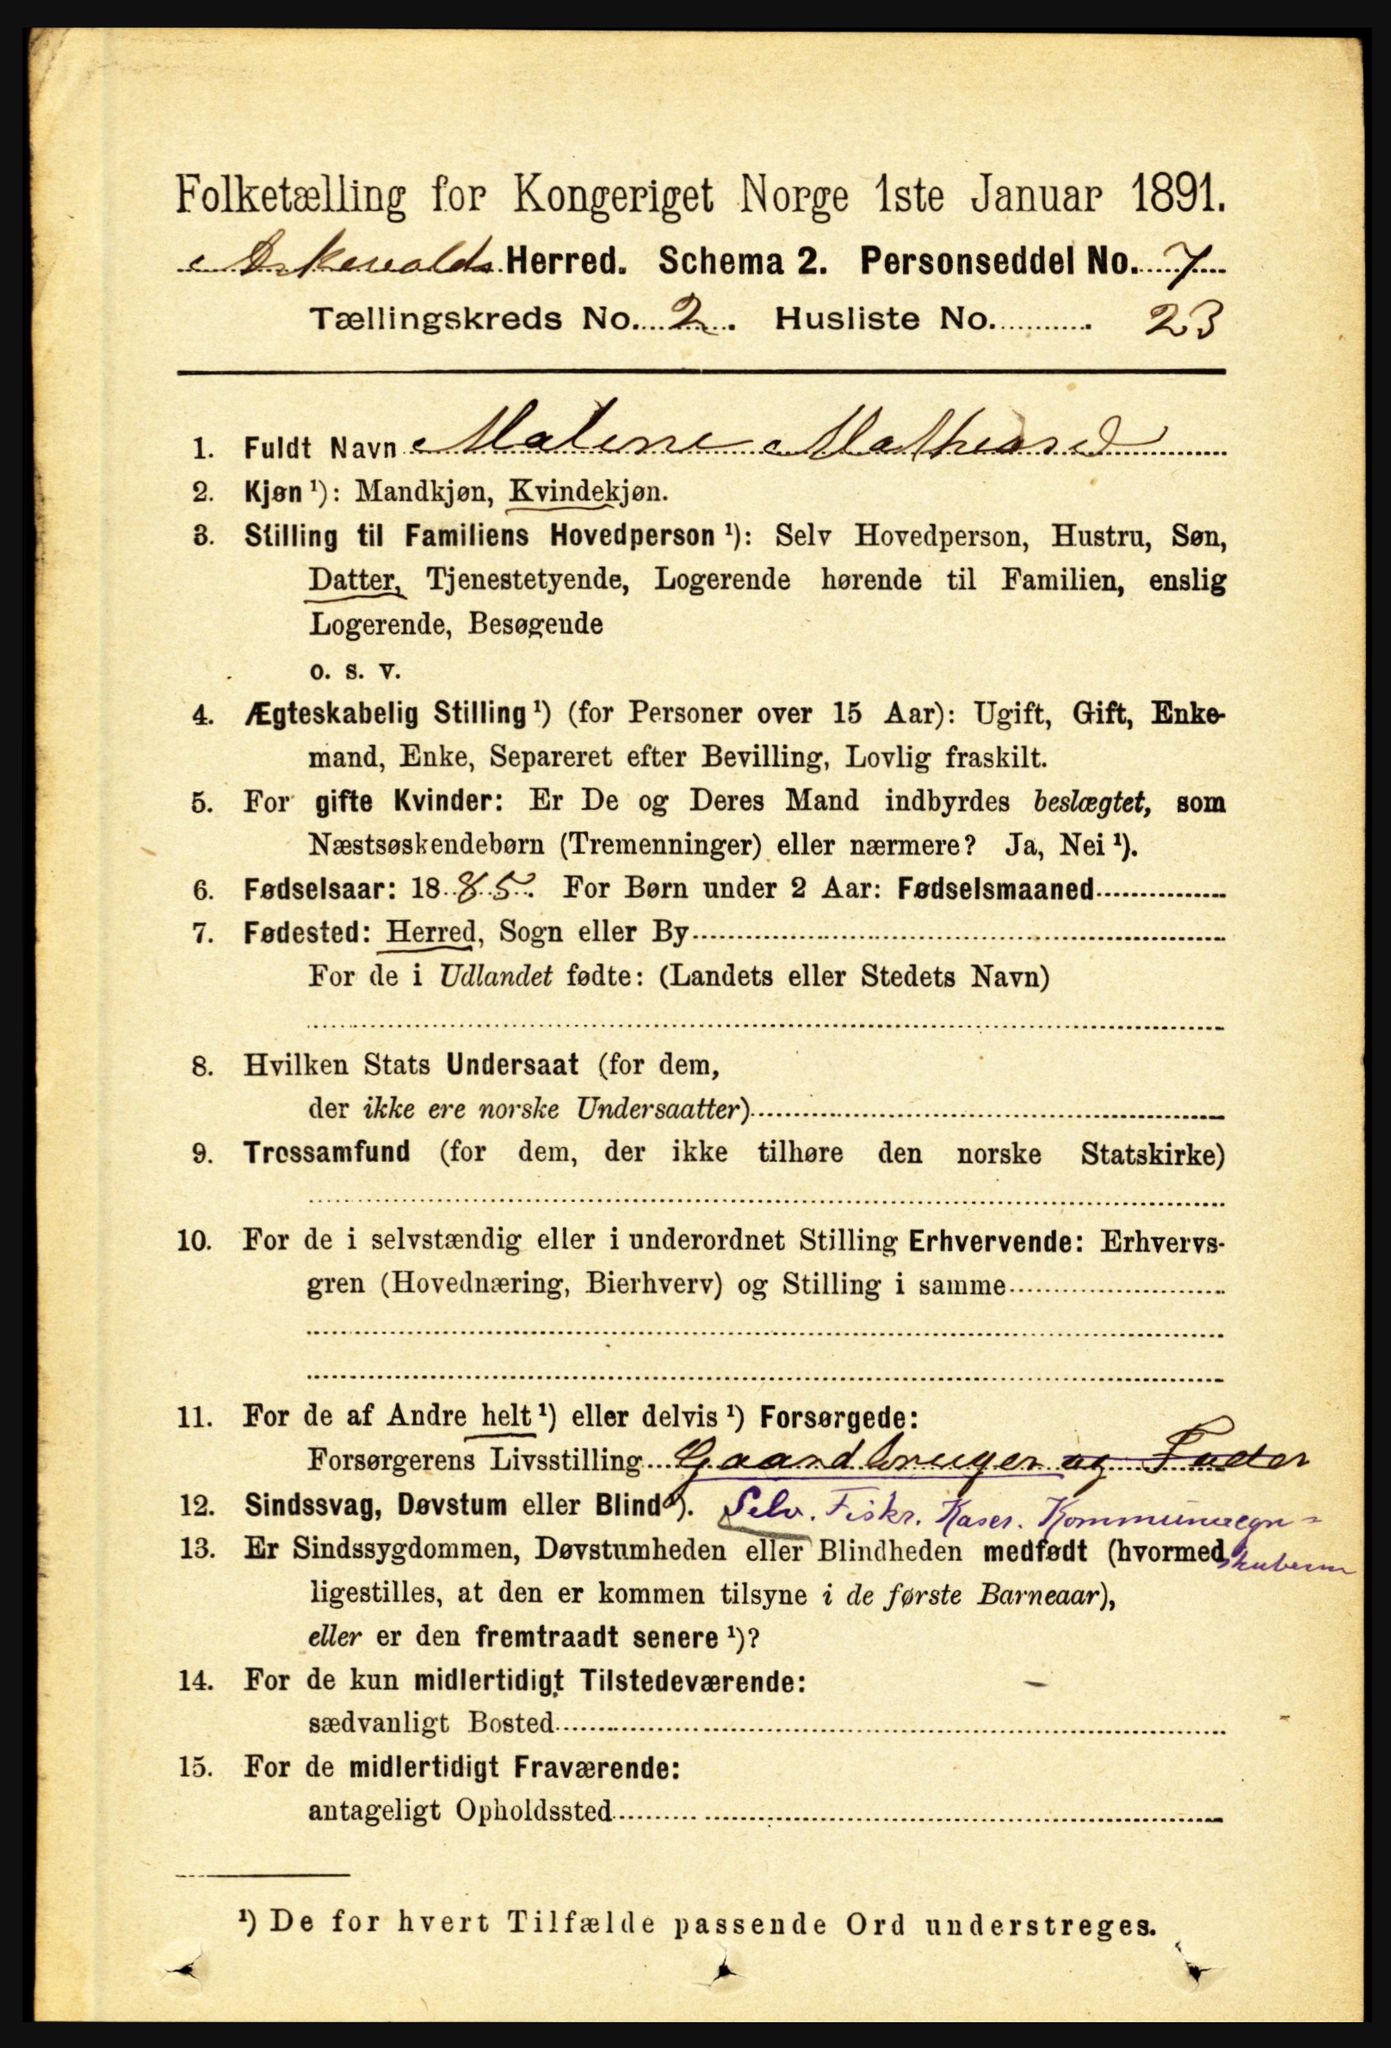 Folketælling for Kongeriget Norge 1ste Januar 1891.
Askevolds Herred. Schema 2. Personseddel No. 7
Tællingskreds No. 2. Husliste No. 23
1. Fuldt Navn Malene Mathiasd
2. Kjøn ¹): Mandkjøn, Kvindekjøn.
3. Stilling til Familiens Hovedperson ¹): Selv Hovedperson, Hustru, Søn,
Datter, Tjenestetyende, Logerende hørende til Familien, enslig
Logerende, Besøgende
o. s. v.
4. Ægteskabelig Stilling ¹) (for Personer over 15 Aar): Ugift, Gift, Enke-
mand, Enke, Separeret efter Bevilling, Lovlig fraskilt.
5. For gifte Kvinder: Er De og Deres Mand indbyrdes beslægtet, som
Næstsøskendebørn (Tremenninger) eller nærmere? Ja, Nei ¹).
6. Fødselsaar: 1885. For Børn under 2 Aar: Fødselsmaaned
7. Fødested: Herred, Sogn eller By
For de i Udlandet fødte: (Landets eller Stedets Navn)
8. Hvilken Stats Undersaat (for dem,
der ikke ere norske Undersaatter)
9. Trossamfund (for dem, der ikke tilhøre den norske Statskirke)
10. For de i selvstændig eller i underordnet Stilling Erhvervende: Erhvervs-
gren (Hovednæring, Bierhverv) og Stilling i samme
11. For de af Andre helt ¹) eller delvis ¹) Forsørgede:
Forsørgerens Livsstilling Gaardbruger og Fader
12. Sindssvag, Døvstum eller Blind ¹). Selv. Fiskr. Kaser. Kommuneregn-
13. Er Sindssygdommen, Døvstumheden eller Blindheden medfødt (hvormed
ligestilles, at den er kommen tilsyne i de første Barneaar),
eller er den fremtraadt senere ¹)?
14. For de kun midlertidigt Tilstedeværende:
sædvanligt Bosted
15. For de midlertidigt Fraværende:
antageligt Opholdssted
¹) De for hvert Tilfælde passende Ord understreges.